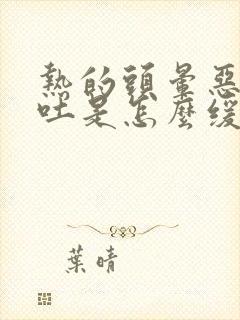 熱的頭暈惡
吐是怎麼緩
葉晴